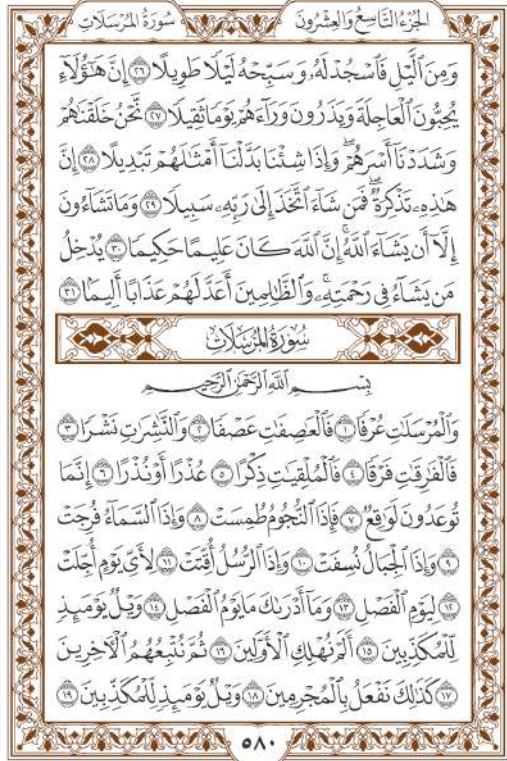 الجُزْءُ التَّاسِعُ وَالعِشْرُونَ
سُورَةُ المُرْسَلَات
وَمِنَ ٱلَّيۡلِ فَٱسۡجُدۡ لَهُۥ وَسَبِّحۡهُ لَيۡلٗا طَوِيلًا ٢٦ إِنَّ هَٰٓؤُلَآءِ
يُحِبُّونَ ٱلۡعَاجِلَةَ وَيَذَرُونَ وَرَآءَهُمۡ يَوۡمٗا ثَقِيلٗا ٢٧ نَّحۡنُ خَلَقۡنَٰهُمۡ
وَشَدَدۡنَآ أَسۡرَهُمۡۖ وَإِذَا شِئۡنَا بَدَّلۡنَآ أَمۡثَٰلَهُمۡ تَبۡدِيلًا ٢٨ إِنَّ
هَٰذِهِۦ تَذۡكِرَةٞۖ فَمَن شَآءَ ٱتَّخَذَ إِلَىٰ رَبِّهِۦ سَبِيلٗا ٢٩ وَمَا تَشَآءُونَ
إِلَّآ أَن يَشَآءَ ٱللَّهُۚ إِنَّ ٱللَّهَ كَانَ عَلِيمًا حَكِيمٗا ٣٠ يُدۡخِلُ
مَن يَشَآءُ فِي رَحۡمَتِهِۦۚ وَٱلظَّٰلِمِينَ أَعَدَّ لَهُمۡ عَذَابًا أَلِيمَۢا ٣١
سُورَةُ المُرْسَلَات
بِسۡمِ ٱللَّهِ ٱلرَّحۡمَٰنِ ٱلرَّحِيمِ
وَٱلۡمُرۡسَلَٰتِ عُرۡفٗا ١ فَٱلۡعَٰصِفَٰتِ عَصۡفٗا ٢ وَٱلنَّٰشِرَٰتِ نَشۡرٗا ٣
فَٱلۡفَٰرِقَٰتِ فَرۡقٗا ٤ فَٱلۡمُلۡقِيَٰتِ ذِكۡرًا ٥ عُذۡرًا أَوۡ نُذۡرًا ٦ إِنَّمَا
تُوعَدُونَ لَوَٰقِعٞ ٧ فَإِذَا ٱلنُّجُومُ طُمِسَتۡ ٨ وَإِذَا ٱلسَّمَآءُ فُرِجَتۡ
٩ وَإِذَا ٱلۡجِبَالُ نُسِفَتۡ ١٠ وَإِذَا ٱلرُّسُلُ أُقِّتَتۡ ١١ لِأَيِّ يَوۡمٍ أُجِّلَتۡ
١٢ لِيَوۡمِ ٱلۡفَصۡلِ ١٣ وَمَآ أَدۡرَىٰكَ مَا يَوۡمُ ٱلۡفَصۡلِ ١٤ وَيۡلٞ يَوۡمَئِذٖ
لِّلۡمُكَذِّبِينَ ١٥ أَلَمۡ نُهۡلِكِ ٱلۡأَوَّلِينَ ١٦ ثُمَّ نُتۡبِعُهُمُ ٱلۡأٓخِرِينَ
١٧ كَذَٰلِكَ نَفۡعَلُ بِٱلۡمُجۡرِمِينَ ١٨ وَيۡلٞ يَوۡمَئِذٖ لِّلۡمُكَذِّبِينَ ١٩
٥٨٠